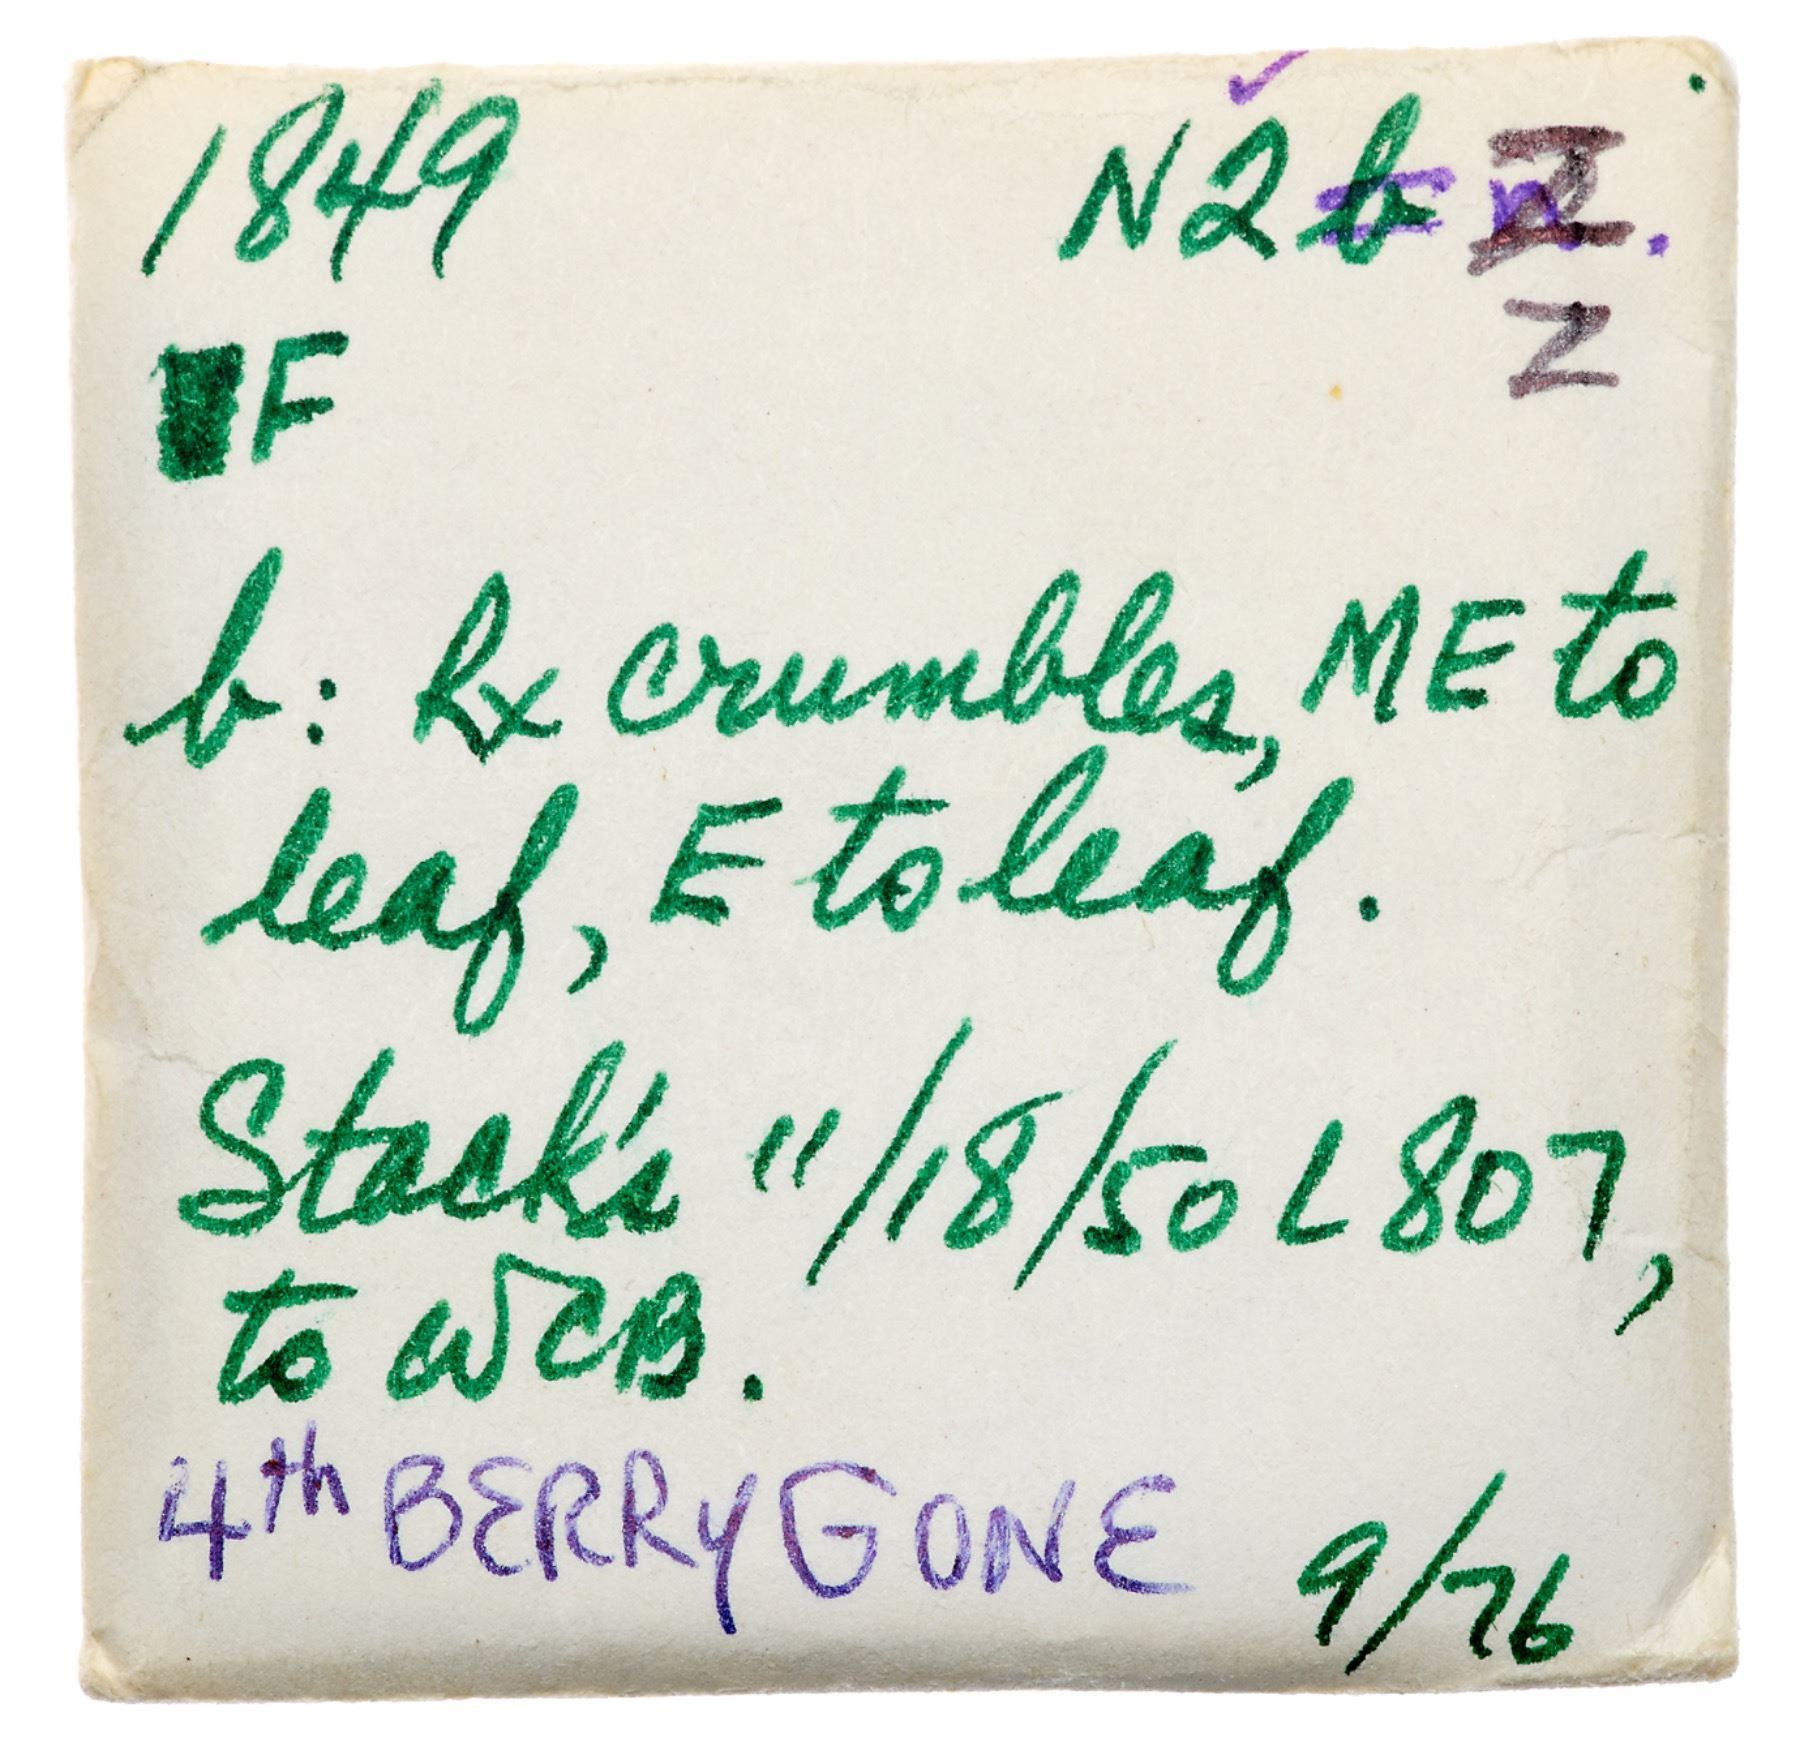 1849 N2b
Z
F
b: Rx crumbles, ME to
leaf, E to leaf.
Stack's 11/18/50 L807,
to WCB.
4th BERRY GONE 9/76